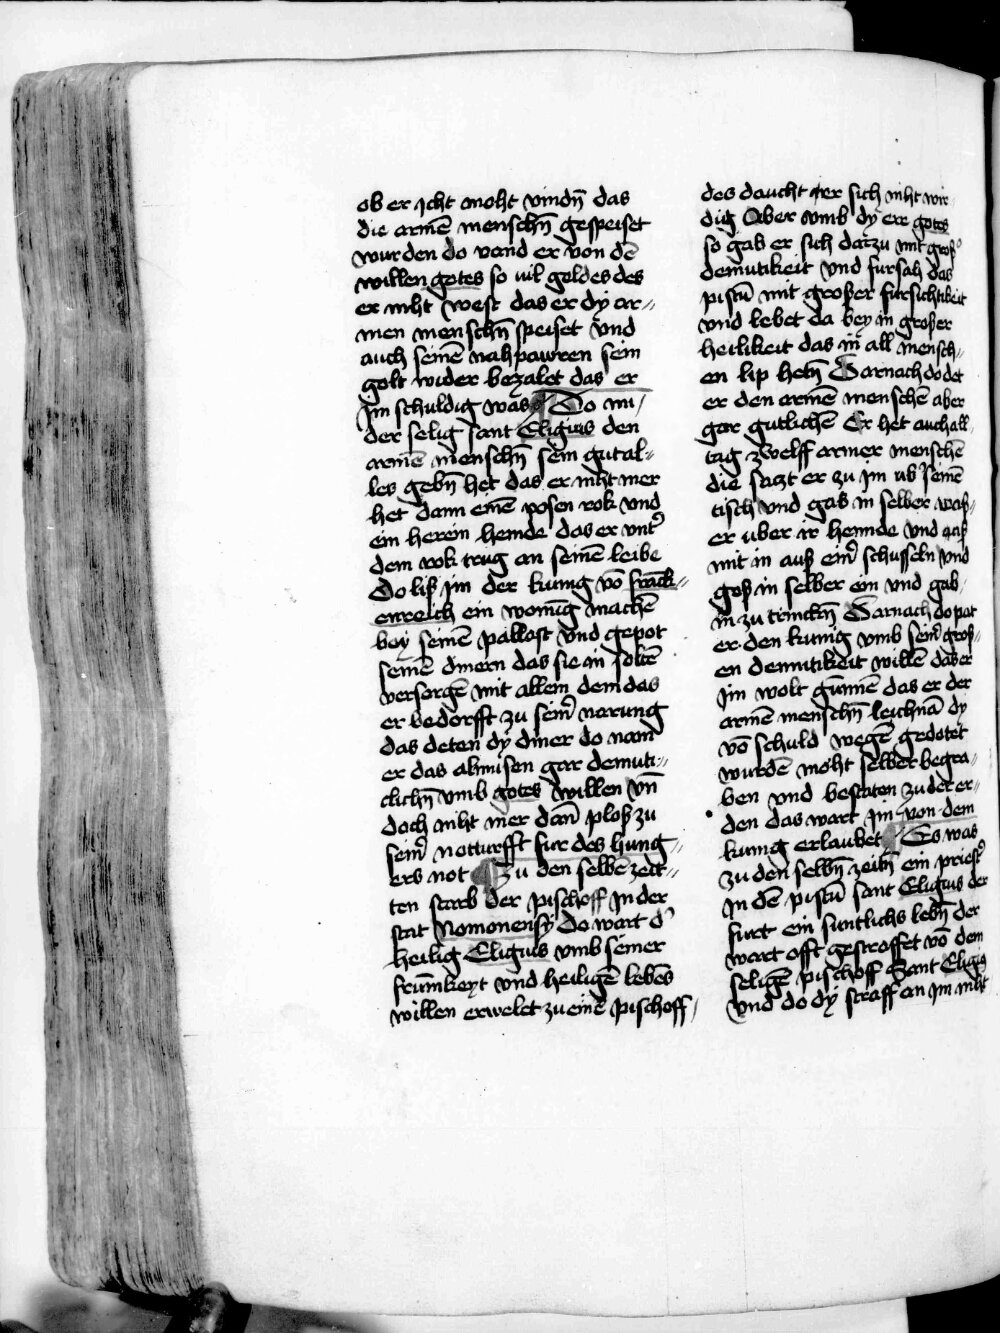 ob er icht moht vindn̄ das
die armē menschn̄ gespeiset
wurden do vand er von dē
willen gotes so vil goldes des
er niht west das er dy ar-
men menschn̄ speiset vnd
auch seinē nahpawren sein
golt wider bezalet das er
jm schuldig was Do nu
der selig sant Eligius den
armē menschn̄ sein gut al-
les gebn̄ het das er niht mer
het dann einē posen rok vnd
ein herein hemde das er vnt̾
dem rok trug an seinē leibe
Do liß jm der kunig vō franck-
enreich ein wonūg machē
bey seinē pallast vnd gepot
seinē dinern das sie in soltē
versorgē mit allem dem das
er bedorfft zu sein̾ narung
das deten dy diner do nam
er das almusen gar demuti-
clichn̄ vmb gotes willen vn̄
doch niht mer dan̄ ploß zu
sein̾ notturfft fur des hung-
ers not Zu den selbē zeit-
ten starb der pischoff jn der
stat Nomonensy Do wart d̾
heilig Eligius vmb seiner
frūmkeyt vnd heiligē lebēs
willen erwelet zu einē pischoff
des daucht er sich niht wir-
dig Aber vmb dy ere gotes
so gab er sich darzu mit groß̾
demutikeit vnd fursah das
pistū mit großer fursichtikeit
vnd lebet da bey in großer
heilikeit das in all mensch-
en lip hetn̄ Darnach do det
er den armen menschē aber
gar gutlichen Er het auch all
tag zwelff armer menschē
die sazt er zu jm vb̾ seinē
tisch vnd gab in selber
er uber ir hennde vnd aß
mit in auß ein̾ schusseln vnd
goß in selber ein vnd gab
in zu trinckn̄ Darnach do pat
er den kunig vmb sein̾ groß-
en demutikeit willē das er
jm wolt gunnē das er der
armē menschn̄ leichnā dy
vō schuld wegē gedotet
wurdē moht selber begra-
ben vnd bestaten zu der er-
den das wart jm von dem
kunig erlaubet Es was
zu den selbn̄ zeitn̄ ein priest̾
jn dē pistū sant Eligius der
furt ein suntlichs lebn̄ der
wart offt gestraffet vō dem
seligē pischoff Sant Eligio
vnd do dy straff an jm niht